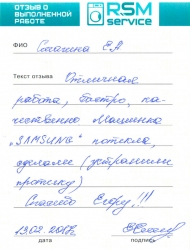 ОТЗЫВ О
ВЫПОЛНЕННОЙ
РАБОТЕ
RSM
service
ФИО Спагина Е.А
Текст отзыва Отличная
работа, быстро, ка-
чественно Машинка
„SAMSUNG" потекла,
сделали (устранили
протечку)
Спасибо Егору,!!!
13.02.2017г.
дата подпись